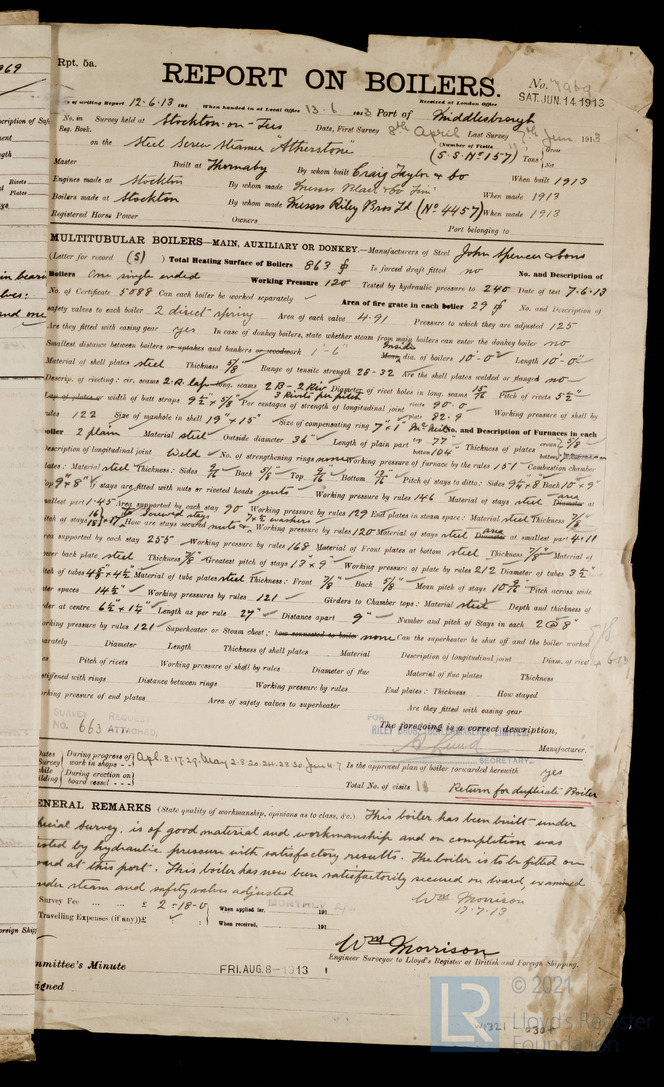 Rpt. 5a.
REPORT ON BOILERS.
No. 7969
SAT. JUN. 14 1913
of writing Report 12.6.13 191 When handed in at Local Office 13.6.1913 Port of Middlesborough
Received at London Office
No. in Survey held at Stockton-on-Tees Date, First Survey 8th April Last Survey 7th June 1913
Reg. Book.
(Number of Visits 11)
on the Steel Screw Steamer "Atherstone" (S.S. No 157) Tons Gross Net
Master Built at Thornaby By whom built Craig Taylor & Co When built 1913
Engines made at Stockton By whom made Messrs Blair & Co Lim When made 1913
Boilers made at Stockton By whom made Messrs Riley Bros Ld (No 4457) When made 1913
Registered Horse Power Owners Port belonging to
MULTITUBULAR BOILERS—MAIN, AUXILIARY OR DONKEY.—Manufacturers of Steel John Spencer & Sons
(Letter for record (S) ) Total Heating Surface of Boilers 863 Is forced draft fitted no No. and Description of
Boilers One single ended Working Pressure 120 Tested by hydraulic pressure to 240 Date of test 7.6.13
No. of Certificate 5088 Can each boiler be worked separately Area of fire grate in each boiler 29 No. and Description of
safety valves to each boiler 2 direct spring Area of each valve 4.91 Pressure to which they are adjusted 125
Are they fitted with easing gear yes In case of donkey boilers, state whether steam from main boilers can enter the donkey boiler no
Smallest distance between boilers or uptakes and bunkers or woodwork 1'-6" Inside Mean dia. of boilers 10'-0" Length 10'-0"
Material of shell plates steel Thickness 5/8 Range of tensile strength 28-32 Are the shell plates welded or flanged no
Descrip. of riveting: cir. seams 2.R. lap long. seams 2 B - 2 Riv Diameter of rivet holes in long. seams 15/16 Pitch of rivets 5 1/2"
Lap of plates or width of butt straps 9 1/2 × 5/8 3 Rivets per pitch Per centages of strength of longitudinal joint rivets 90.0 plate 82.9 Working pressure of shell by
rules 122 Size of manhole in shell 19" × 15" Size of compensating ring 7" × 1" McNeil No. and Description of Furnaces in each
boiler 2 plain Material steel Outside diameter 36" Length of plain part top 77" bottom 104" Thickness of plates crown 5/8 bottom
Description of longitudinal joint Weld No. of strengthening rings none Working pressure of furnace by the rules 151 Combustion chamber
plates: Material steel Thickness: Sides 9/16 Back 5/8 Top 9/16 Bottom Pitch of stays to ditto: Sides 9 1/4 × 8 Back 10 × 9"
Top 9" × 8" If stays are fitted with nuts or riveted heads nuts Working pressure by rules 146 Material of stays steel Diameter area at
smallest part 1.45 Area supported by each stay 90 Working pressure by rules 129 End plates in steam space: Material steel Thickness
Pitch of stays How are stays secured nuts & washers Working pressure by rules 120 Material of stays steel Diameter area at smallest part 4.11
Area supported by each stay 255 Working pressure by rules 168 Material of Front plates at bottom steel Thickness 7/8 Material of
Lower back plate steel Thickness 7/8 Greatest pitch of stays 13 × 9" Working pressure of plate by rules 212 Diameter of tubes 3 1/2"
Pitch of tubes 4 5/8 × 4 1/2 Material of tube plates steel Thickness: Front 7/8 Back 5/8 Mean pitch of stays 10 Pitch across wide
water spaces 14 1/2" Working pressures by rules 121 Girders to Chamber tops: Material steel Depth and thickness of
girder at centre 6 1/2 × 1 1/4 Length as per rule 27" Distance apart 9" Number and pitch of Stays in each 2 @ 8"
Working pressure by rules 121 Superheater or Steam chest; how connected to boiler none Can the superheater be shut off and the boiler worked
separately Diameter Length Thickness of shell plates Material Description of longitudinal joint Diam. of rivet
Pitch of rivets Working pressure of shell by rules Diameter of flue Material of flue plates Thickness
stiffened with rings Distance between rings Working pressure by rules End plates: Thickness How stayed
Working pressure of end plates Area of safety valves to superheater Are they fitted with easing gear
SURVEY REQUEST
NO. 663 ATTACHED,
The foregoing is a correct description,
FOR RILEY BROS. (BOILERMAKERS) LIMITED.
Manufacturer.
SECRETARY.
During progress of work in shops Apl. 8.17.29. May 2.8.20.24.28.30. June 4.7. Is the approved plan of boiler forwarded herewith yes
During erection on board vessel Total No. of visits 11
Return for duplicate Boiler
GENERAL REMARKS (State quality of workmanship, opinions as to class, &c.) This boiler has been built under
special survey, is of good material and workmanship and on completion was
tested by hydraulic pressure with satisfactory results. The boiler is to be fitted on
board at this port. This boiler has now been satisfactorily secured on board, examined
under steam and safety valve adjusted
Wm Morrison
17.7.13
Survey Fee £ 2-18-0 When applied for, 191
Travelling Expenses (if any) £ When received, 191
Wm Morrison
Engineer Surveyor to Lloyd's Register of British and Foreign Shipping.
Committee's Minute FRI. AUG. 8 - 1913
signed
© 2021
Lloyd's Register
Foundation
LR
W1321-0304